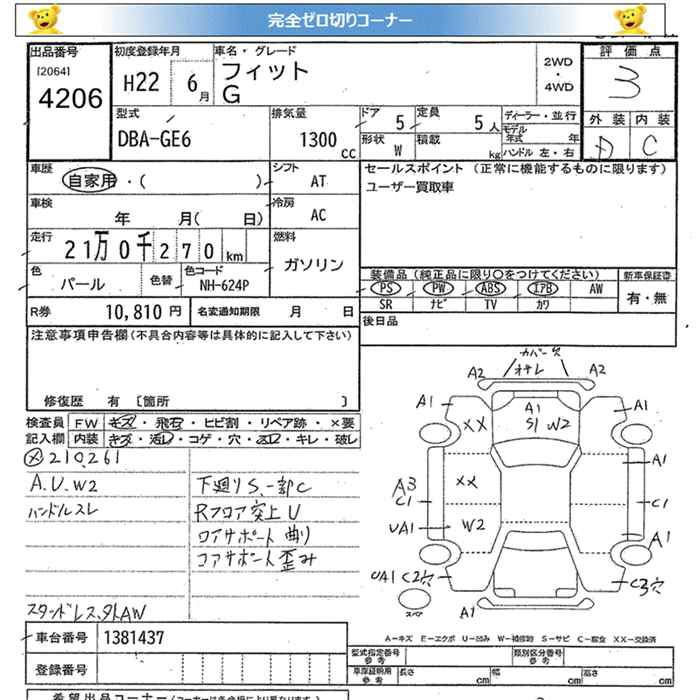 完全ゼロ切りコーナー
出品番号 初度登録年月 車名・グレード 評価点
[2064]
4206 H22 6月 フィット G 2WD・4WD 3
型式 排気量 ドア 定員 ディーラー・並行 外装 内装
DBA-GE6 1300cc 5 5人 モデル年式 年 D C
形状 W 積載 kg ハンドル 左・右
車歴 自家用・( ) シフト AT セールスポイント (正常に機能するものに限ります)
ユーザー買取車
車検 年 月( 日) 冷房 AC
走行 21万0千270km 燃料 ガソリン
色 パール 色替 色コード NH-624P
装備品(純正品に限り○をつけてください) 新車保証書
PS PW ABS エアB AW 有・無
SR ナビ TV カワ
R券 10,810円 名変通知期限 月 日 後日品
注意事項申告欄(不具合内容等は具体的に記入して下さい)
修復歴 有 [箇所 ]
検査員記入欄 FW キズ・飛石・ヒビ割・リペア跡・×要
内装 キズ・汚レ・コゲ・穴・スレ・キレ・破レ
× 210,261
A.U.W2 下廻りS.一部C
ハンドルスレ Rフロア突上U
ロアサポート曲り
コアサポート歪み
スタッドレス,外AW
カバー穴
A2 オサレ A2
A1 A1
XX A1 S1 W2
A1
A3 C1 XX C1
UA1 W2 A1
UA1 C2穴 C3穴
スペア A1
A-キズ E-エクボ U-凹み W-補修跡 S-サビ C-腐食 XX-交換済
車台番号 1381437
型式指定番号 参考 類別区分番号 参考
登録番号
車庫証明用 参考 長さ cm 幅 cm 高さ cm
希望出品コーナー